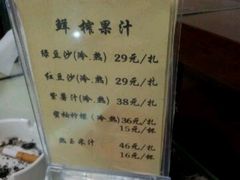 鲜榨果汁
绿豆沙(冷.热) 29元/扎
红豆沙(冷.热) 29元/扎
紫薯汁(冷.热) 38元/扎
蜜柚柠檬(冷.热) 36元/扎
15元/杯
玉米汁 46元/扎
16元/杯